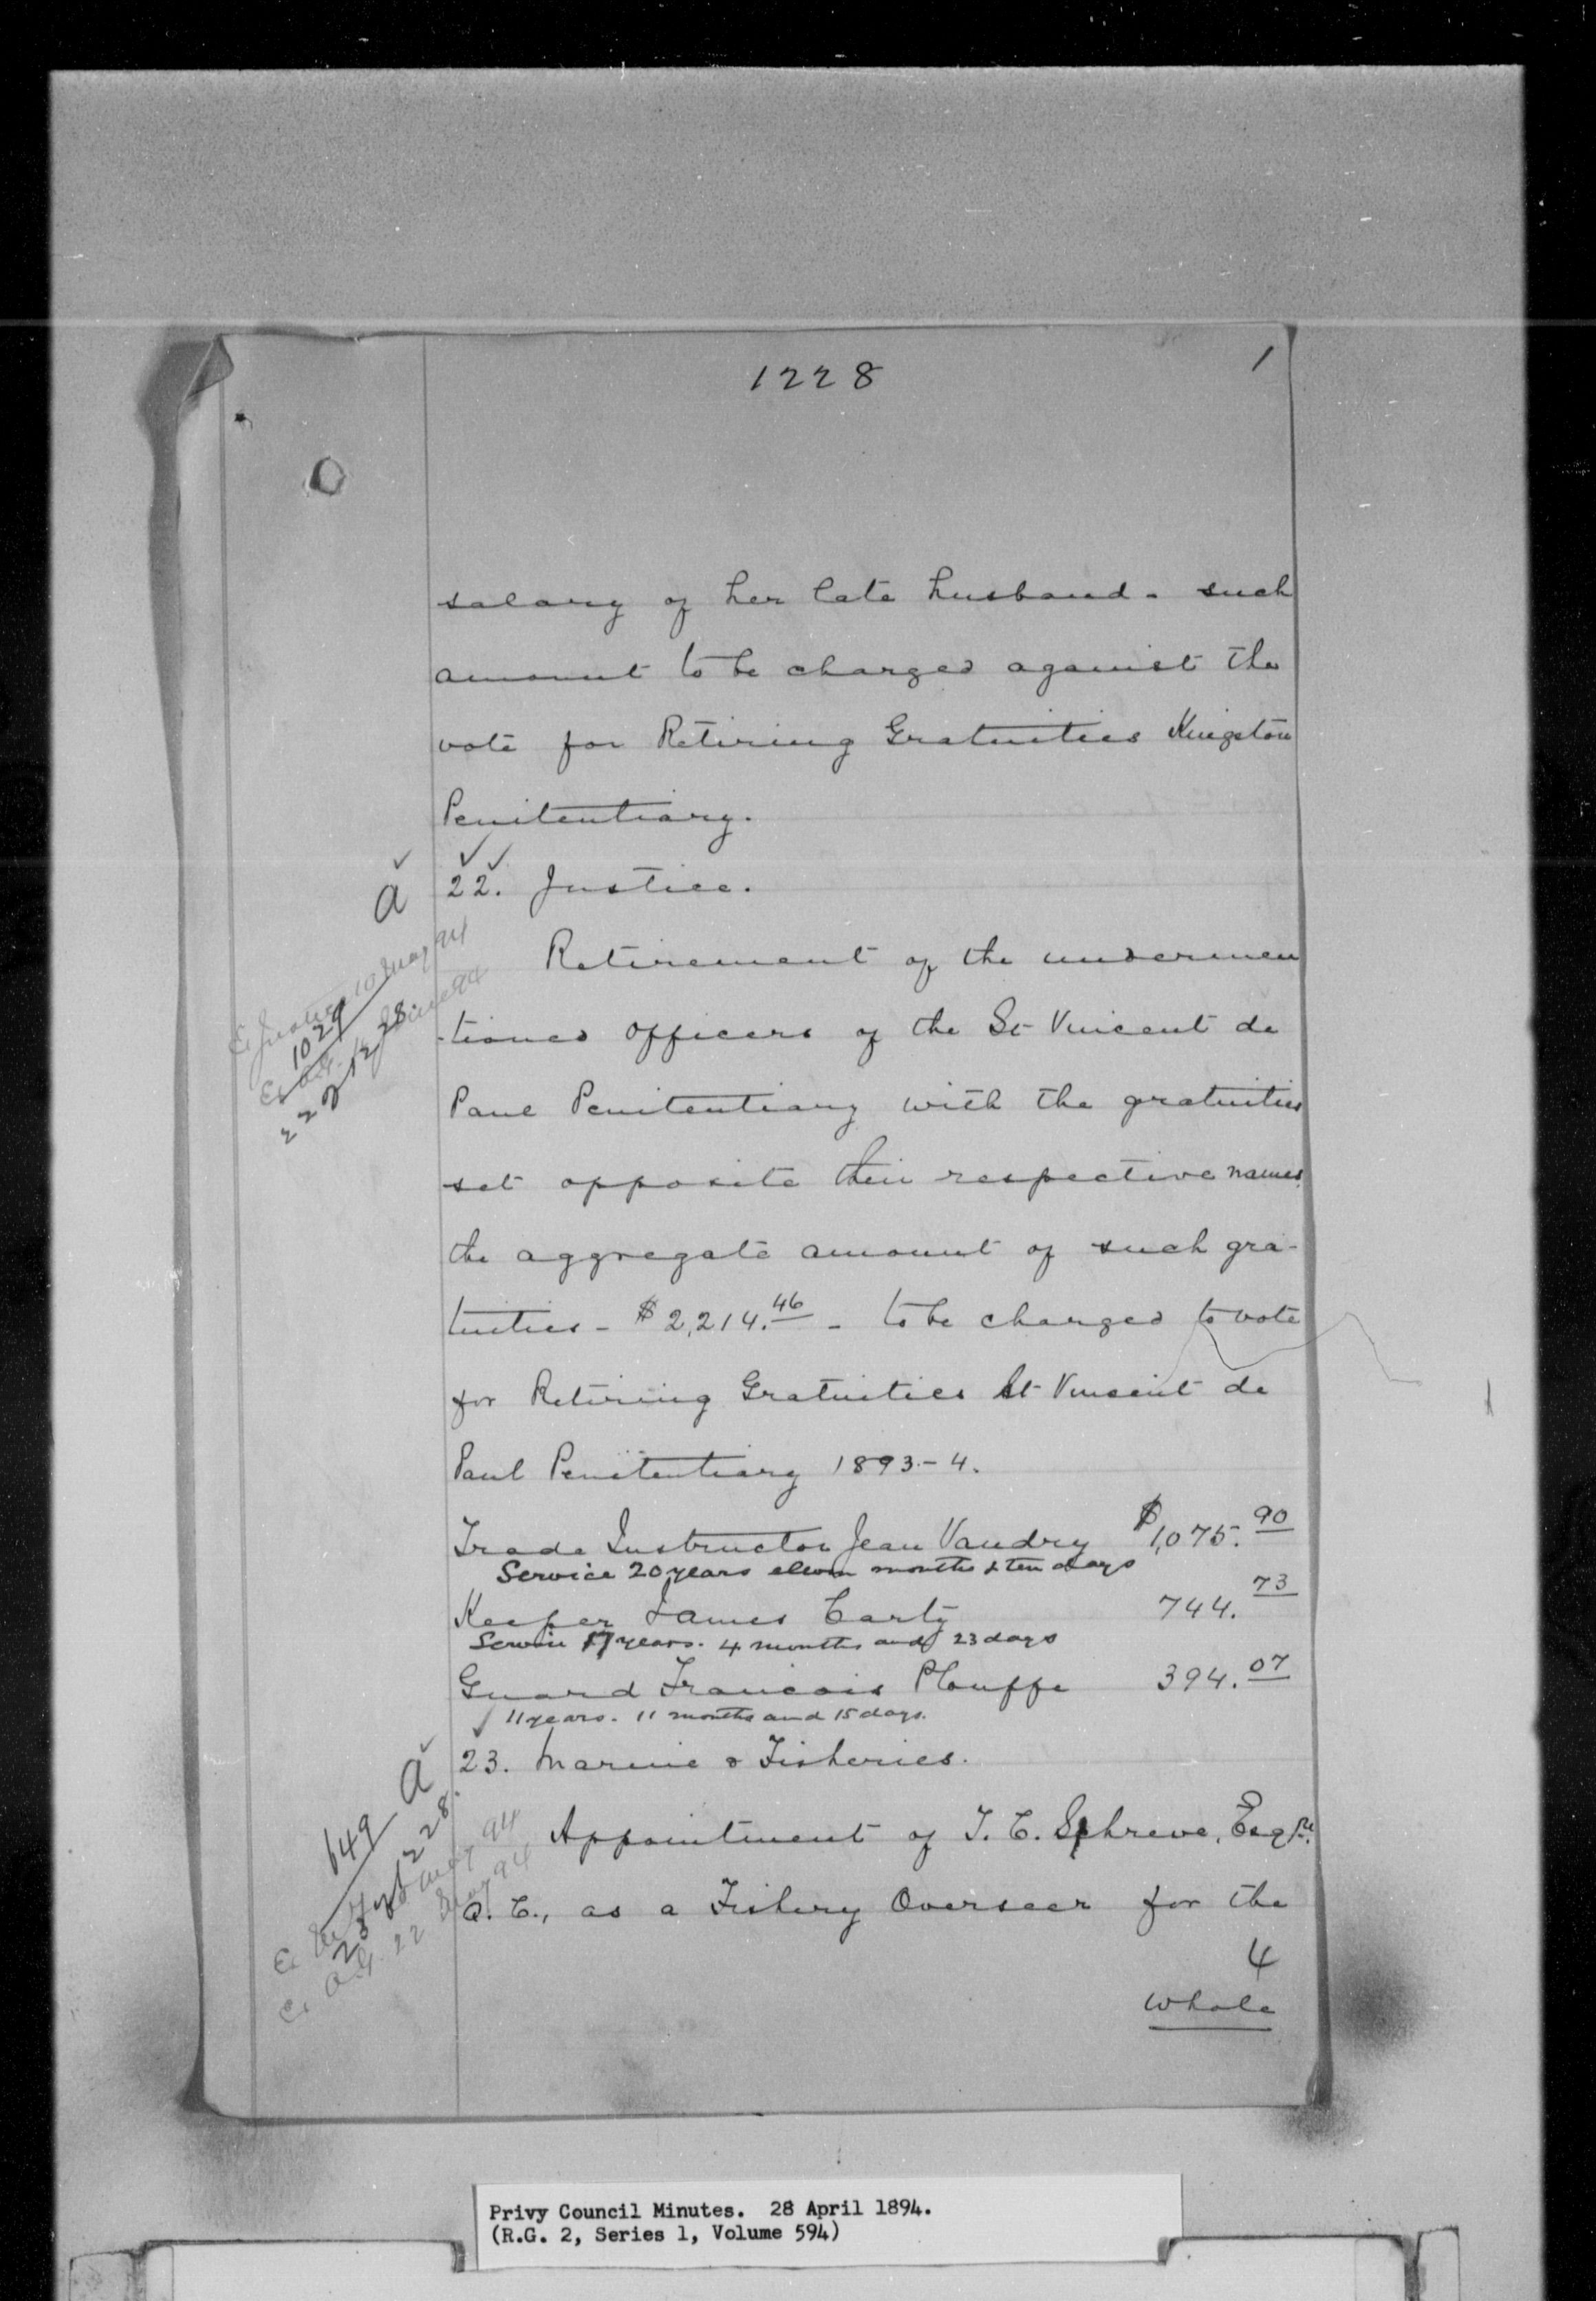 1228
1
salary of her late husband - such
amount to be charged against the
vote for Retiring Gratuities Kingston
Penitentiary.
a 22. Justice.
Retirement of the undermen
-tioned officers of the St Vincent de
Paul Penitentiary with the gratuities
set opposite their respective names,
the aggregate amount of such gra-
tuities - $2,214.46 - to be charged to vote
for Retiring Gratuities St Vincent de
Paul Penitentiary 1893-4.
Trade Instructor Jean Vaudry $1,075.90
Service 20 years eleven months & ten days
Keeper James Carty 744.73
Service 17 years. 4 months and 23 days
Guard Francois Plouffe 394.07
11 years. 11 months and 15 days.
a 23. Marine & Fisheries.
Appointment of T. C. Schreve, Esqre.
Q. C., as a Fishery Overseer for the
4
whole
1029
649
Privy Council Minutes. 28 April 1894.
(R.G. 2, Series 1, Volume 594)